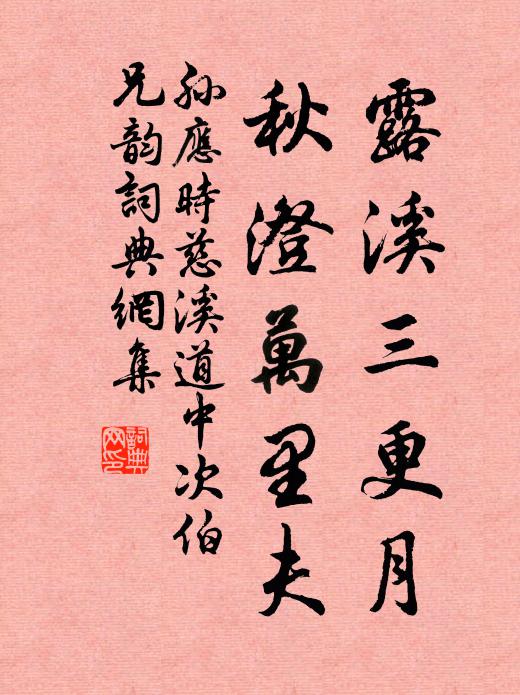 露溪三更月
秋澄萬里夫
孫應時慈溪道中次伯
兄韵詞典網集
詞典
网印